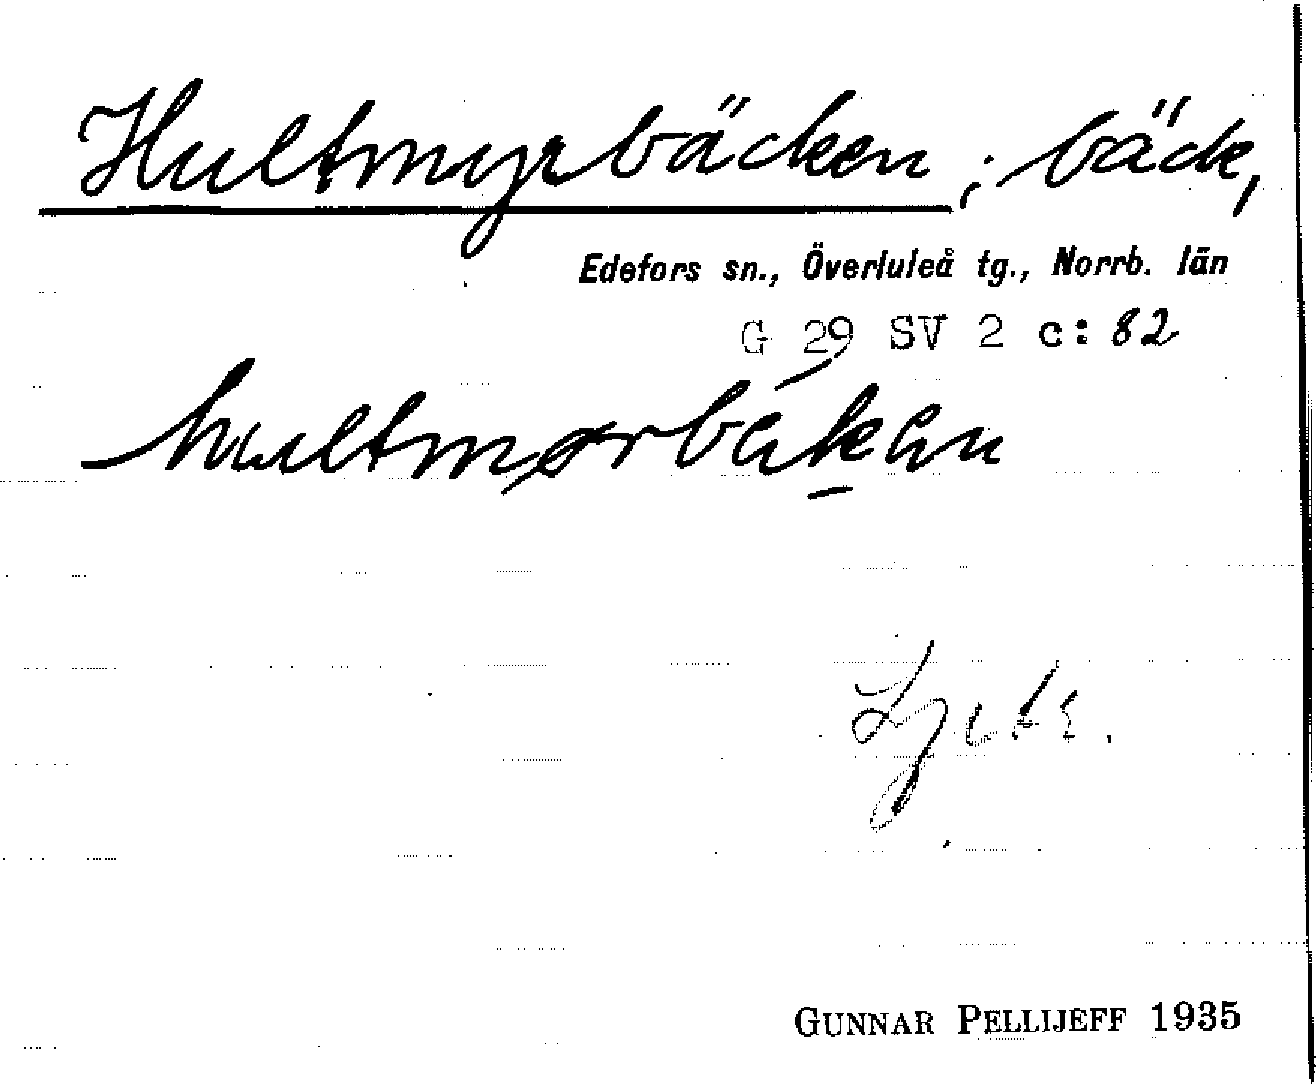 Hultmyrbäcken; bäck,
Edefors sn., Överluleå tg., Norrb. län
G 29 SV 2 c: 82
GUNNAR PELLIJEFF 1935